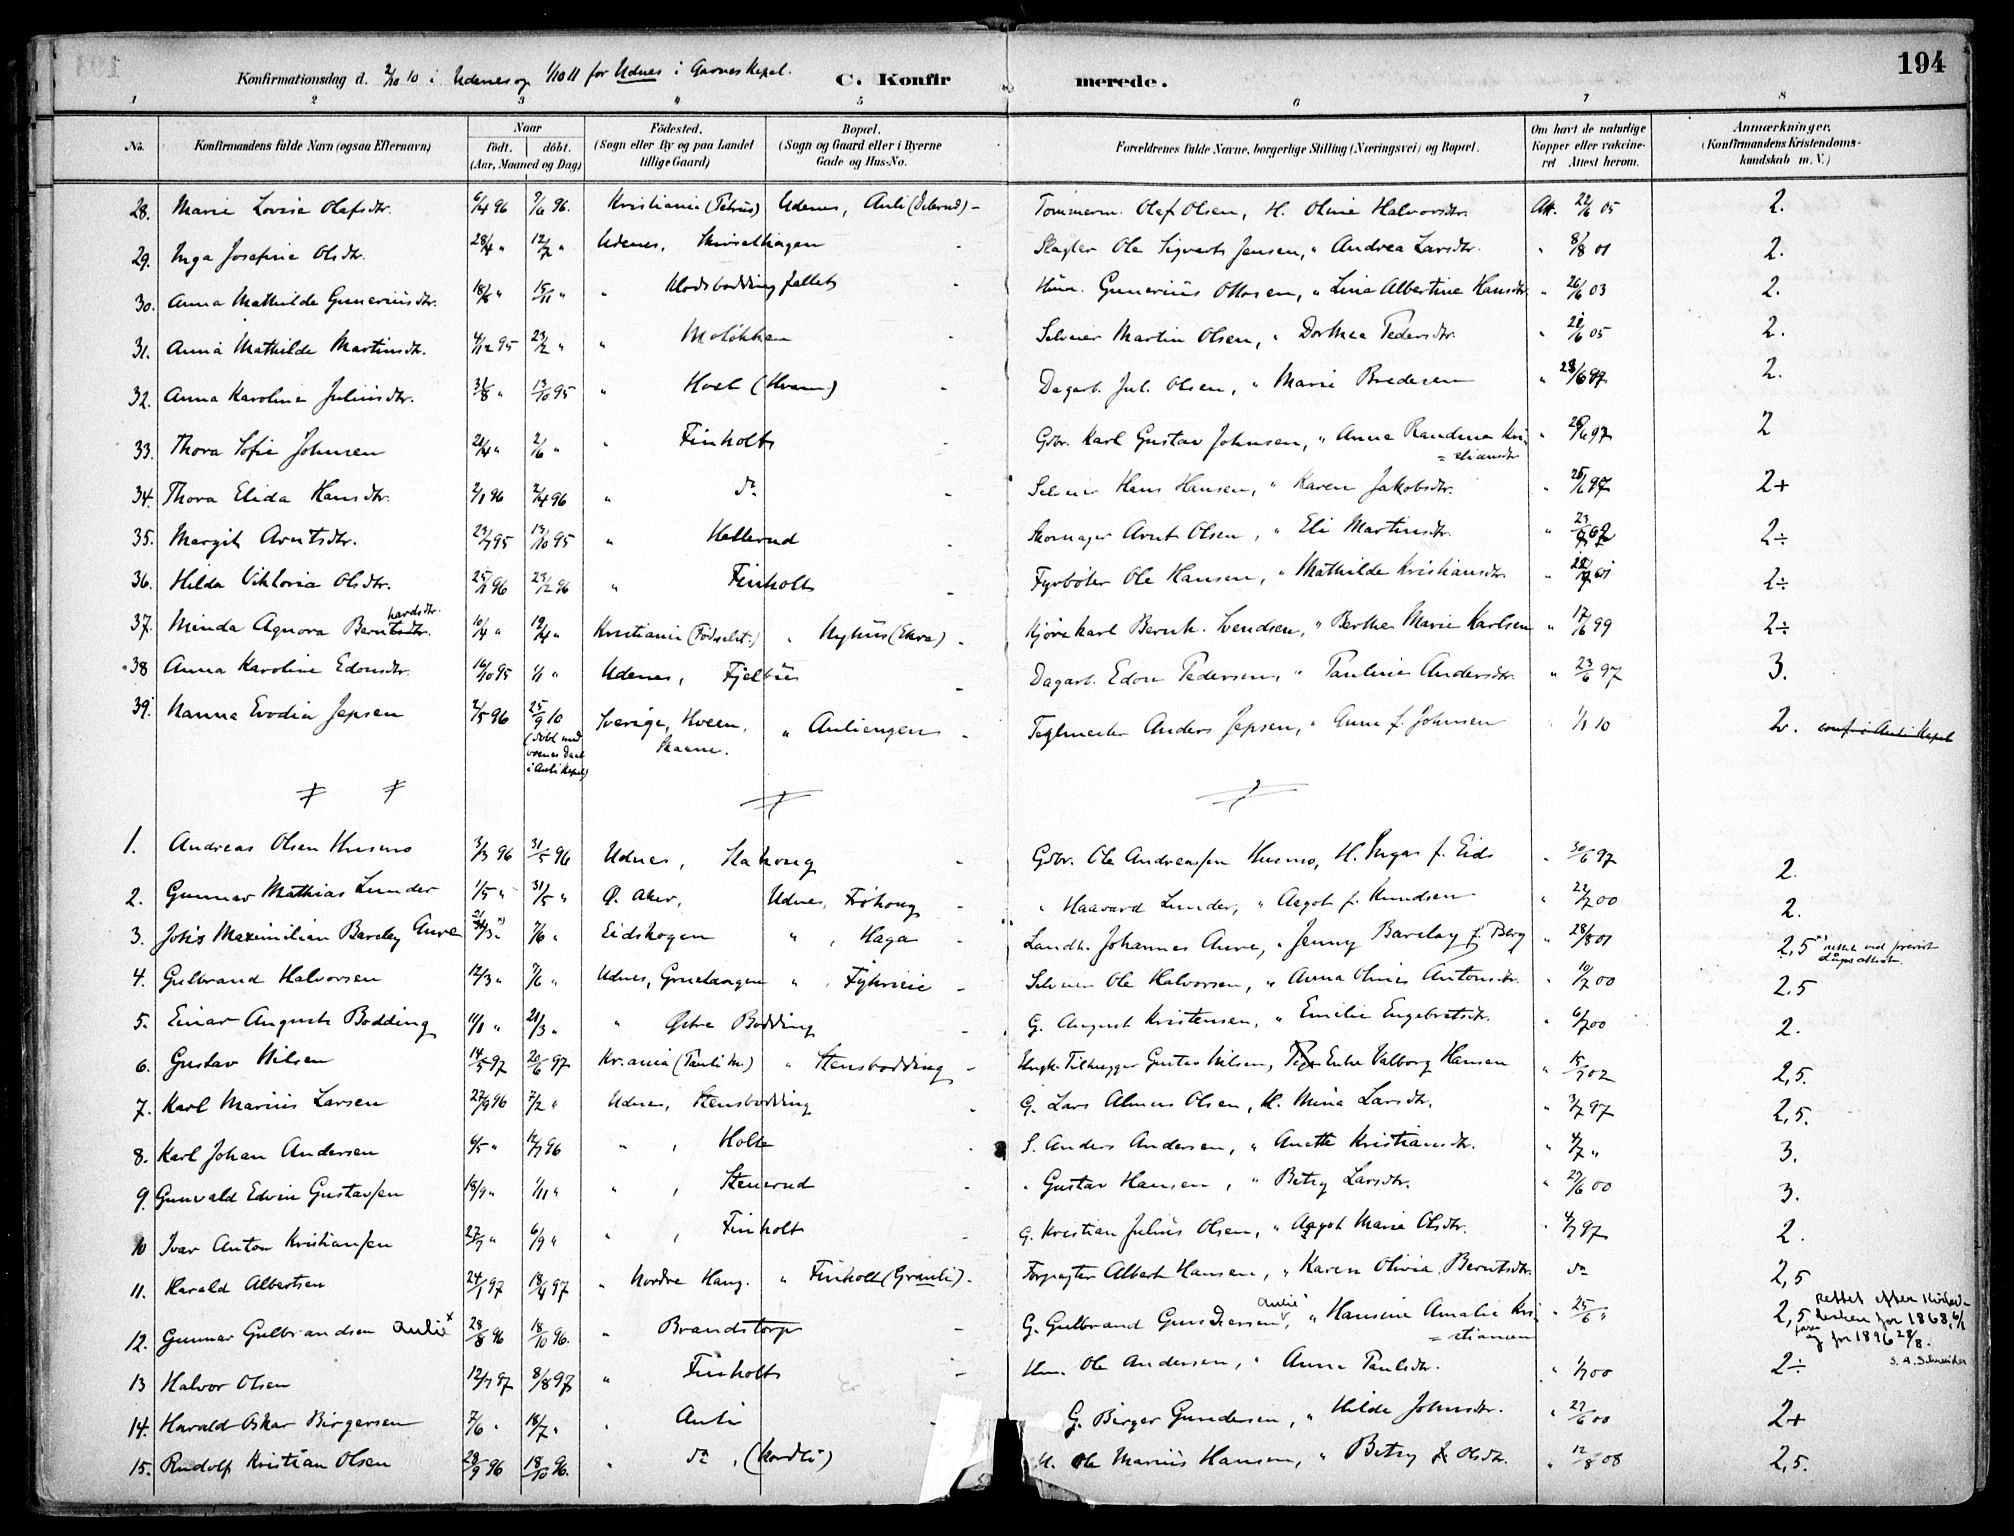 194
Konfirmationsdag d. 2/10 10 i Udenes og 1/10 11 for Udnes i Garnes Kapel. C. Konfirmerede.
1 2 3 4 5 6 7 8
No. Konfirmandens fulde Navn (ogsaa Efternavn) Naar födt. döbt. (Aar, Maaned og Dag) Födested. (Sogn eller By og paa Landet tillige Gaard) Bopæl. (Sogn og Gaard eller i Byerne Gade og Hus-No.) Forældrenes fulde Navne, borgerlige Stilling (Næringsvei) og Bopæl. Om havt de naturlige Kopper eller vakcineret. Attest herom. Anmærkninger. (Konfirmandens Kristendomskundskab m. V.)
28. Marie Lovise Olafsdtr. 6/4 96 7/6 96. Kristiania (Petrus) Udenes, Auli - Tømmerm. Olaf Olsen, H. Oline Halvorsdtr. Att. 22/6 05 2.
29. Inga Josefine Olsdtr. 28/4 " 12/7 " Udenes, - Slagter Ole Sigvarts Jensen, " Andrea Larsdtr. " 8/8 01 2.
30. Anna Mathilde Guneriusdtr. 18/8 " 15/11 " " Hm. Gunerius Ottosen, " Lina Albertine Hansdtr " 26/6 03 2.
31. Anna Mathilde Martinsdtr. 4/12 95 23/2 " " Moløkken - Selveier Martin Olsen, " Dorthea Pedersdtr. " 21/6 05 2.
32. Anna Karoline Juliusdtr. 31/8 " 13/10 95 " Hoel (Hvam) - Dagarb. Jul. Olsen, " Marie Bredesen " 23/6 97 2.
33. Thora Sofie Johnsen 21/4 " 2/6 " " Finholt - Gbr. Karl Gustav Johnsen, " Anna Randine Kri= " 26/6 97 2
=stiansdtr
34. Thora Elida Hansdtr. 2/1 96 2/4 96 " do - Selveier Hans Hansen, " Karen Jakobsdtr. " 25/6 97 2+
35. Margit Arntsdtr. 23/7 95 13/10 95 " Hellerud - Skomager Arnt Olsen, " Eli Martinsdtr. " 2÷
36. Hilda Viktoria Olsdtr. 25/1 96 23/2 96 " Finholt - Fyrbøter Ole Hansen, " Mathilde Kristiansdtr. " 2÷
37. Minda Agnora Berntsdtr. hardsdtr. 16/4 " 19/4 " Kristiania (Fødselst.) " Nyhus (Ekra) - Kjørekarl Bernh. Svendsen, " Berthe Marie Karlsen " 17/6 99 2÷
38 Anna Karoline Edonsdtr. 16/10 95 1/1 " Udenes, Fjelbus - Dagarb. Edon Pedersen, " Pauline Andersdtr. " 23/6 97 3.
39. Nanna Evodia Jepsen 2/5 96 25/9 10 Sverige, Hveen, " Auliengen - Teglmester Anders Jepsen, " Anna f. Johnsen " 1/1 10 2. conf. i Auli Kapel
(døbt med voxnes Daab i Auli Kapel) Skaane.
1. Andreas Olsen Husmo 3/3 96 31/5 96 Udnes, Hahoug - Gbr. Ole Andreassen Husmo, H. Inga f. Eid " 30/6 97 2.
2. Gunnar Mathias Lunder 1/5 " 31/5 " Ø. Aker, Udnes, Frøhoug - " Haavard Lunder, " Aagot f. Knudsen " 22/7 00 2.
3. Johs Maximilian Barclay Aure 21/3 x) 7/6 " Eidskogen " , Haga - Landh. Johannes Aure, " Jenny Barclay f. Berg " 28/8 01 2,5 x) rettet ved previst dåpsattest.
4. Gulbrand Halvorsen 12/3 " 7/6 " Udnes, " , - Selveier Ole Halvorsen, " Anna Oline Antonsdtr. " 10/7 00 2.5
5. Einar August Bodding 11/1 " 21/3 " " Østre Bodding - G. August Kristensen, " Emilie Engebretsdtr. " 6/7 00 2.
6. Gustav Nilsen 14/5 97 20/6 97 Kr.ania (Pauli M.) " Stensbodding - Ungk. Tilhugger Gustav Nilsen, Pige Enke Valborg Hansen " 15/7 02 2,5.
7. Karl Marius Larsen 27/9 96 7/2 " Udnes, Stensbodding - G. Lars Olsen, H. Mina Larsdtr. " 3/7 97 2,5.
8. Karl Johan Andersen 6/5 " 12/7 96 " , Holte - S. Anders Andersen, " Anette Kristiansdtr. " 4/7 " 3.
9. Gunvald Edvin Gustavsen 18/9 " 1/11 " " , Stenerud - " Gustav Hansen, " Betzy Larsdtr. " 29/6 00 3.
10 Ivar Anton Kristiansen 27/7 " 6/9 " " , Finholt G. Kristian Julius Olsen, " Aagot Marie Olsdtr. " 4/7 97 2.
11. Harald Albertsen 24/1 97 18/4 97 " Nordre Haug. " Finholt (Granli). - Forpagter Albert Hansen, " Karen Olivia Berntsdtr. do 2,5
12. Gunnar Gulbrandsen Aulie x 28/8 96 18/10 96. " Brandstorp - G. Gulbrand Gundersen, Aulie " Hansine Amalie Kri= " 25/6 " 2,5 Rettet efter kirkeboken for 1868, 6/1
=stiansen og for 1896 28/8. S. A. Schneider
13 Halvor Olsen 12/7 97 8/8 97 " Finholt - Hm. Ole Andersen, " Anna Paulsdtr. " 1/7 00 2÷
14. Harald Oskar Birgersen 7/6 " 18/7 " " Auli - G. Birger Gundersen, " Hilda Johnsdtr. " 27/6 00 2+
15. Rudolf Kristian Olsen 28/9 96 18/10 96. " do, (Nordli) H. Ole Marius Hansen, " Betzy Olsdtr. " 12/8 08 2,5.